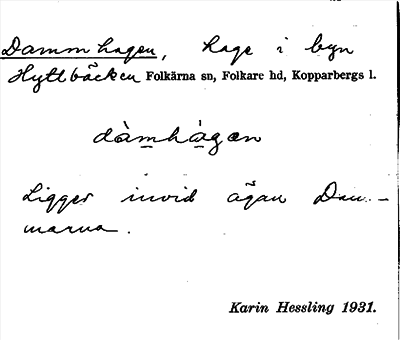 Dammhagen, hage i byn
Hyttbäcken Folkärna sn, Folkare hd, Kopparbergs l.
dàmhàgen
Ligger invid ägan Dam-
marna.
Karin Hessling 1931.